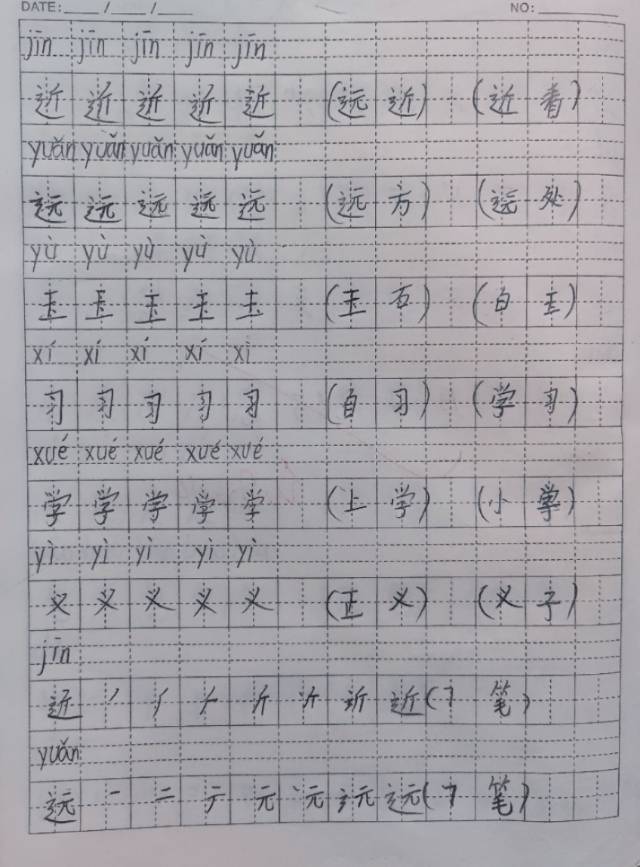 DATE: / / NO:
jīn jīn jīn jīn jīn
近 近 近 近 近 (远 近) (近 看)
yuǎn yuǎn yuǎn yuǎn yuǎn
远 远 远 远 远 (远 方) (远 处)
yù yù yù yù yù
玉 玉 玉 玉 玉 (玉 石) (白 玉)
xí xí xí xí xì
习 习 习 习 习 (自 习) (学 习)
xué xué xué xué xué
学 学 学 学 学 (上 学) (小 学)
yì yì yì yì yì
义 义 义 义 义 (正 义) (义 子)
jīn
近 丿 斤 近 (7 笔)
yuǎn
远 一 二 元 远 (7 笔)